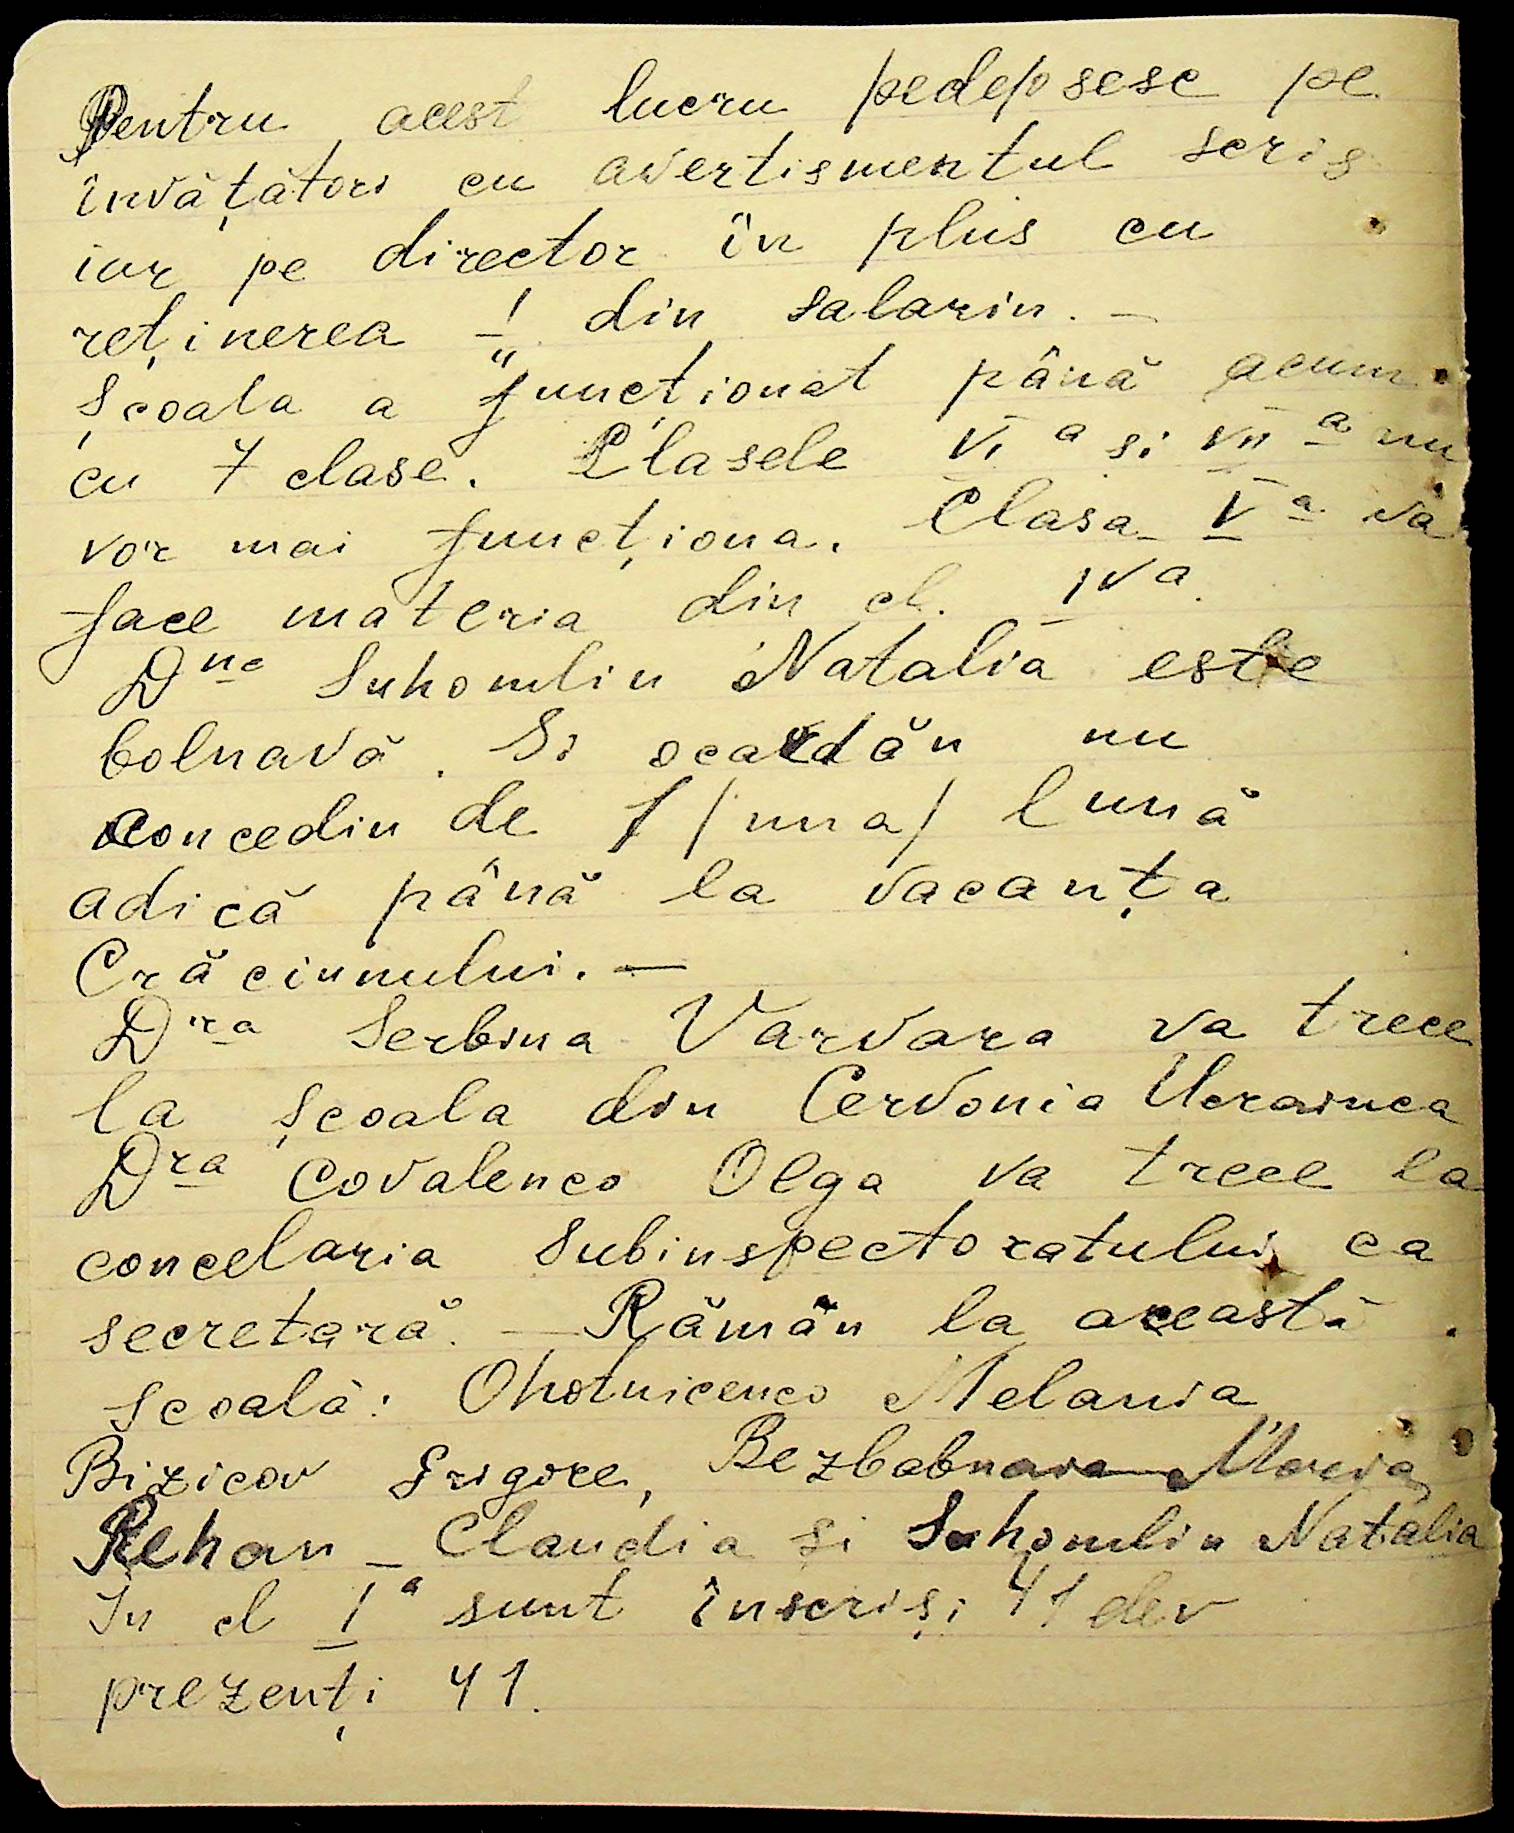 Pentru acest lucru pedepsesc pe
învățători cu avertismentul scris
iar pe director în plus cu
reținerea din salariu. —
Școala a funcționat până acum
cu 7 clase. Clasele VI a si VII a nu
vor mai funcționa. Clasa V a va
face materia din cl. IV a.
Dna Suhomlin Natalia este
bolnavă. Si ocardăn nu
concediu de 1 /una/ lună
adică până la vacanța
Crăciunului. —
Dra Serbina Varvara va trece
la școala din Cervonia Ucrainca
Dra Covalenco Olga va trece la
concelaria Subinspectoratului ca
secretară. — Rămăn la această
școală: Ohotnicenco Melania
Bizicov Grigore, Bezbabnaia Maria
Rehan - Claudia și Suhomlin Natalia
In cl I a sunt înscriși 41 elev
prezenți 41.